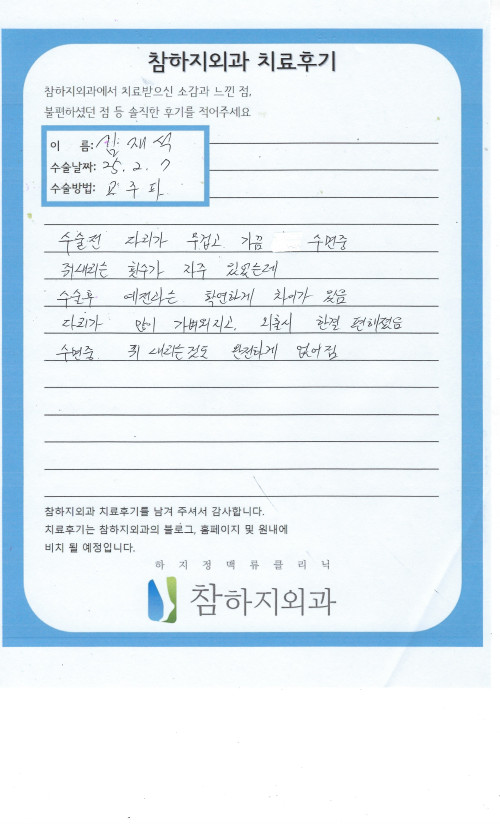 참하지외과 치료후기
참하지외과에서 치료받으신 소감과 느낀 점,
불편하셨던 점 등 솔직한 후기를 적어주세요
이 름: 심재석
수술날짜: 25. 2. 7
수술방법: 고주파
수술전 다리가 무겁고 가끔 수면중
쥐내리는 횟수가 자주 있었는데
수술후 예전과는 확연하게 차이가 있음
다리가 많이 가벼워지고, 외출시 한결 편해졌음
수면중 쥐 내리는것도 완전하게 없어짐
참하지외과 치료후기를 남겨 주셔서 감사합니다.
치료후기는 참하지외과의 블로그, 홈페이지 및 원내에
비치 될 예정입니다.
하지정맥류클리닉
참하지외과